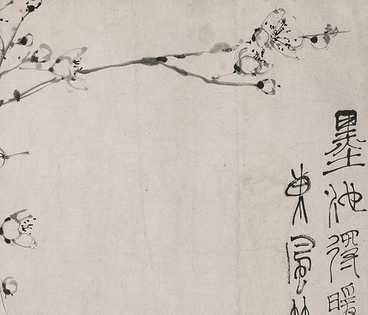 墨池得暖
東風